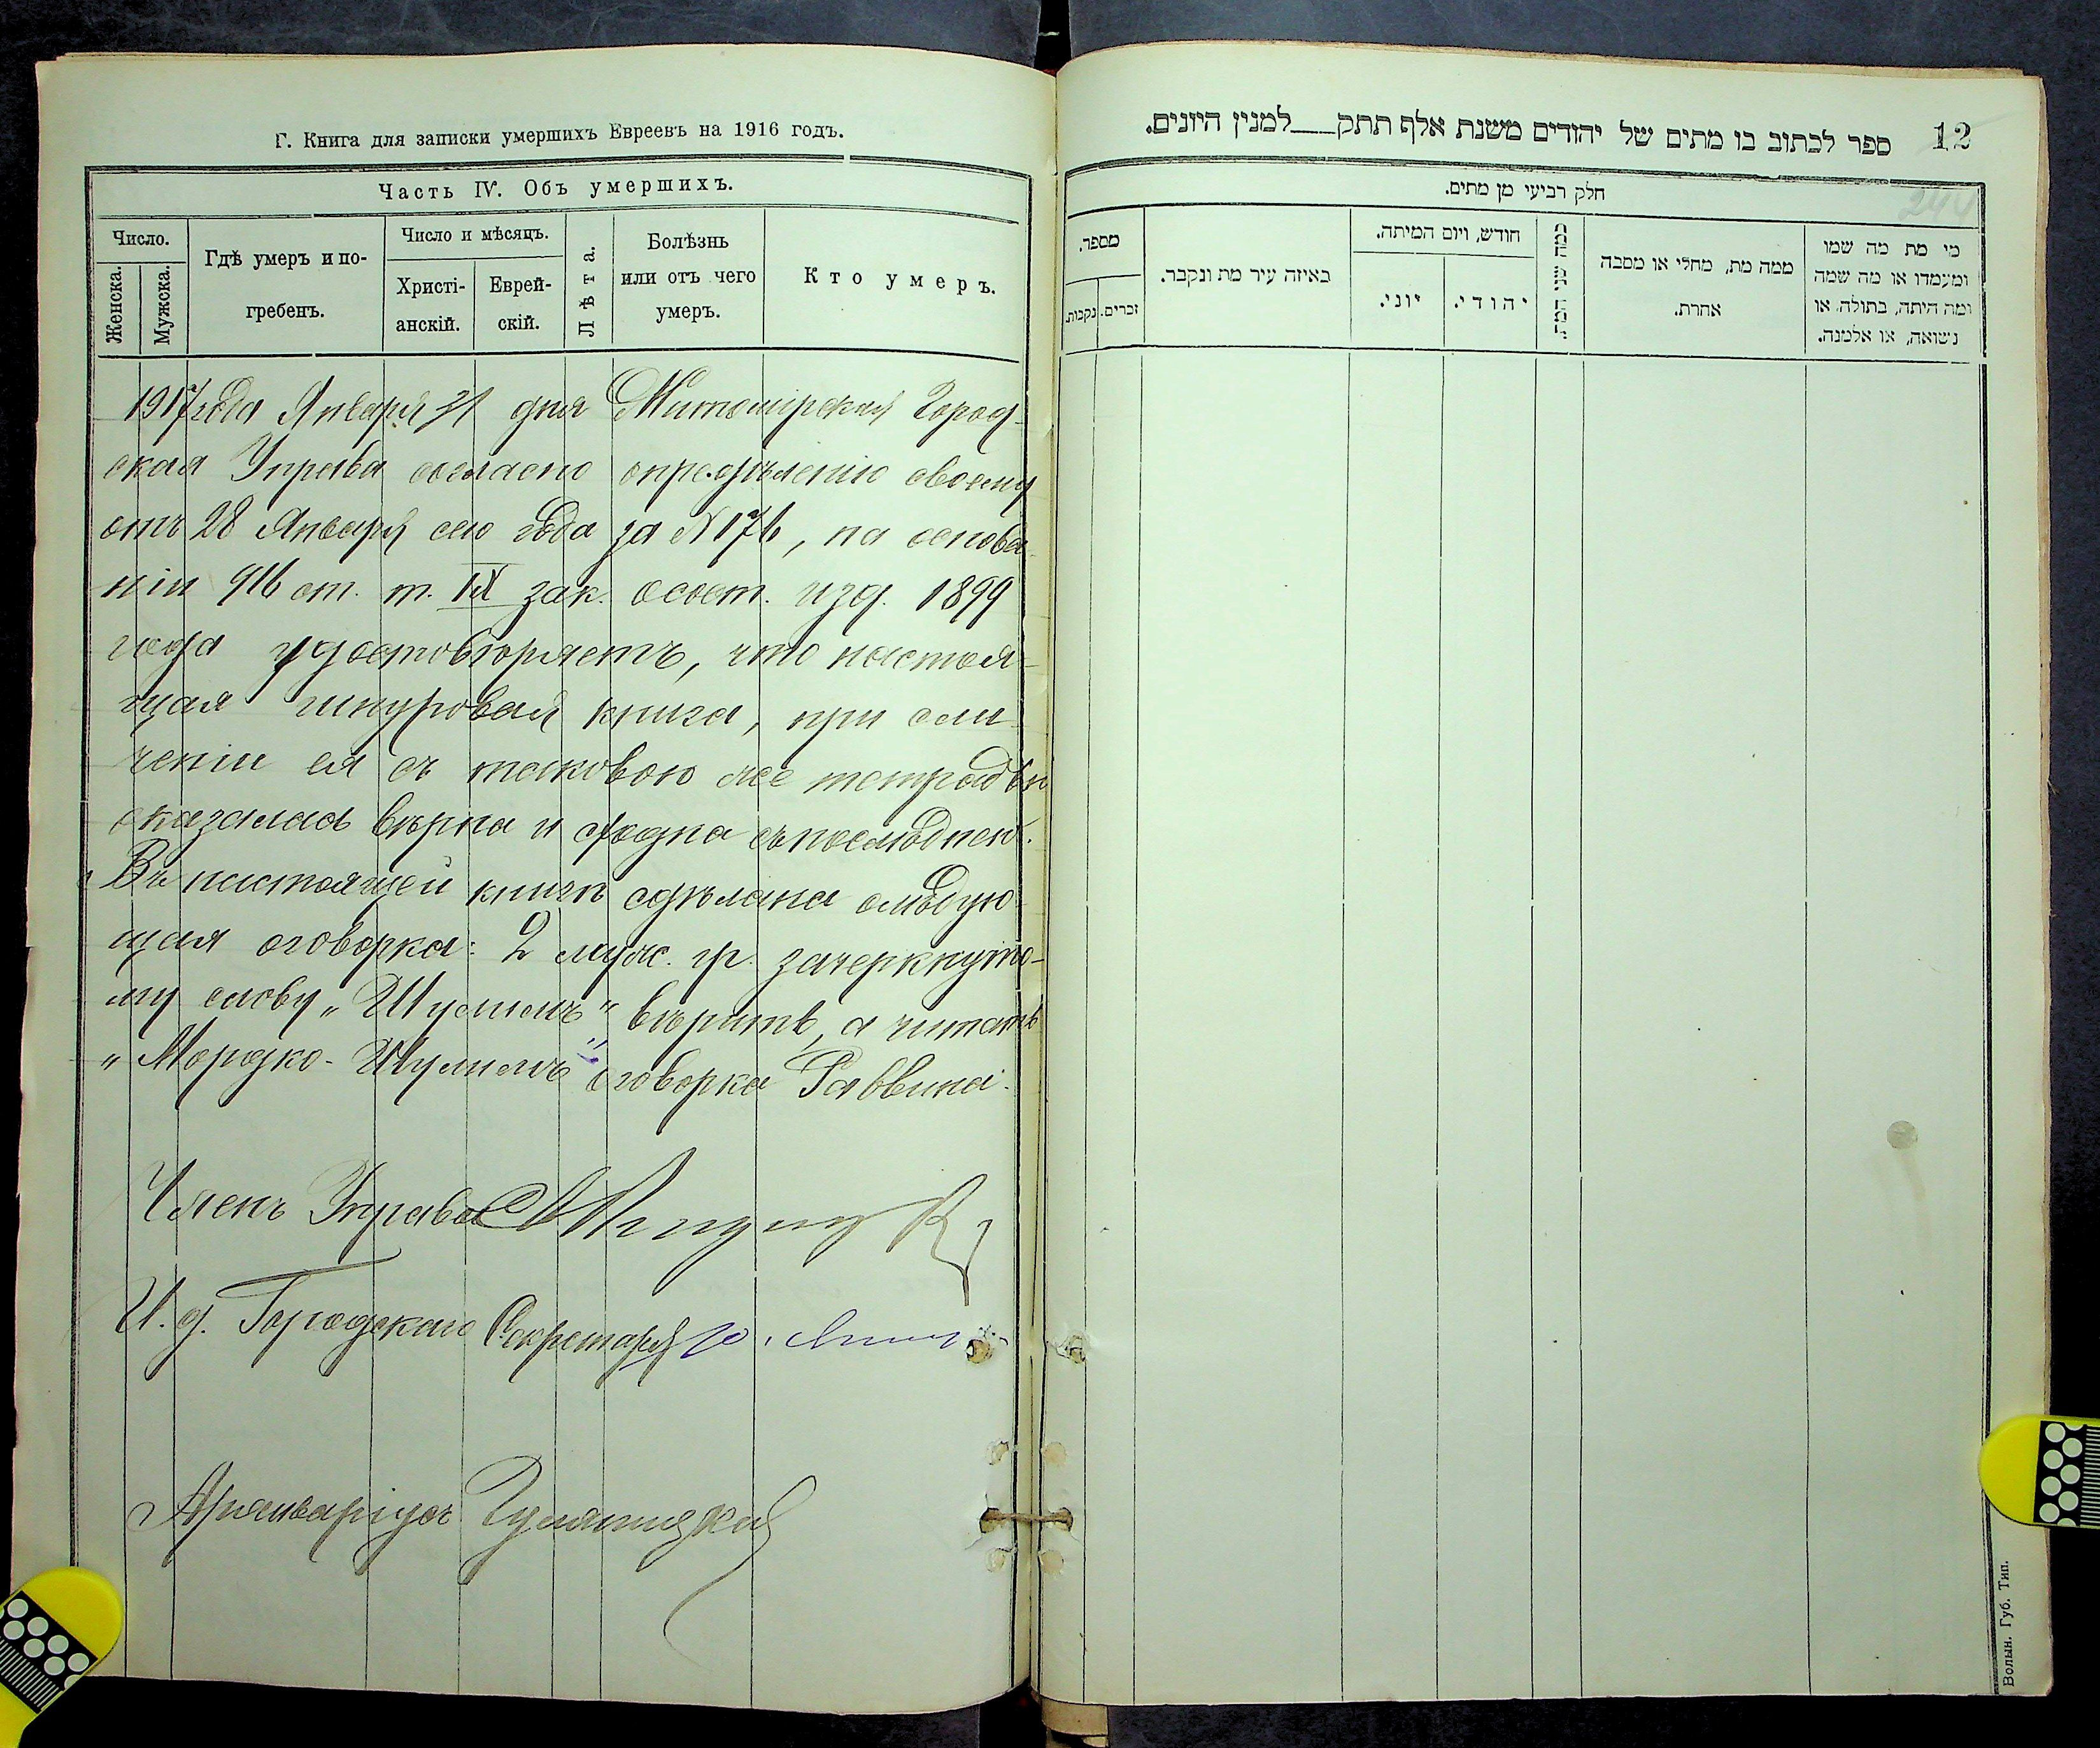 Г. Книга для записки умершихъ Евреевъ на 1916 годъ.
Часть IV. Объ умершихъ.
Число.
Женска.
Мужска.
Гдѣ умеръ и по-
гребенъ.
Число и мѣсяцъ.
Христі-
анскій.
Еврей-
скій.
Лѣта.
Болѣзнь
или отъ чего
умеръ.
Кто умеръ.
1917 года Января 31 дня Житомірская Город-
ская Управа согласно опредѣленію своему
отъ 28 Января сего года за N 176, на основа-
ніи 916 ст. т. IX зак. о сост. изд. 1899
года удостовѣряетъ, что настоя-
щая шнуровая книга, при сли-
ченіи ея съ таковою же тетрадью
оказалась вѣрна и сходна съ послѣдней.
Въ настоящей книгѣ сдѣлана слѣдую-
щая оговорка: 2 муж. гр. зачеркнуто-
му слову „Шулимъ" вѣрить, а читать
„Мордко-Шулимъ" оговорка Раввина.
Членъ Управы
И. д. Городского Секретаря
Архиваріусъ
12
ספר לכתוב בו מתים של יהודים משנת אלף תתק___למנין היונים.
חלק רביעי מן מתים.
מי מת מה שמו
ומעמדו או מה שמה
ומה היתה, בתולה או
נשואה, או אלמנה.
ממה מת, מחלי או מסבה
אחרת.
כמה שני המת.
חודש, ויום המיתה.
יהודי.
יוני.
באיזה עיר מת ונקבר.
מספר.
זכרים.
נקבות.
Волын. Губ. Тип.